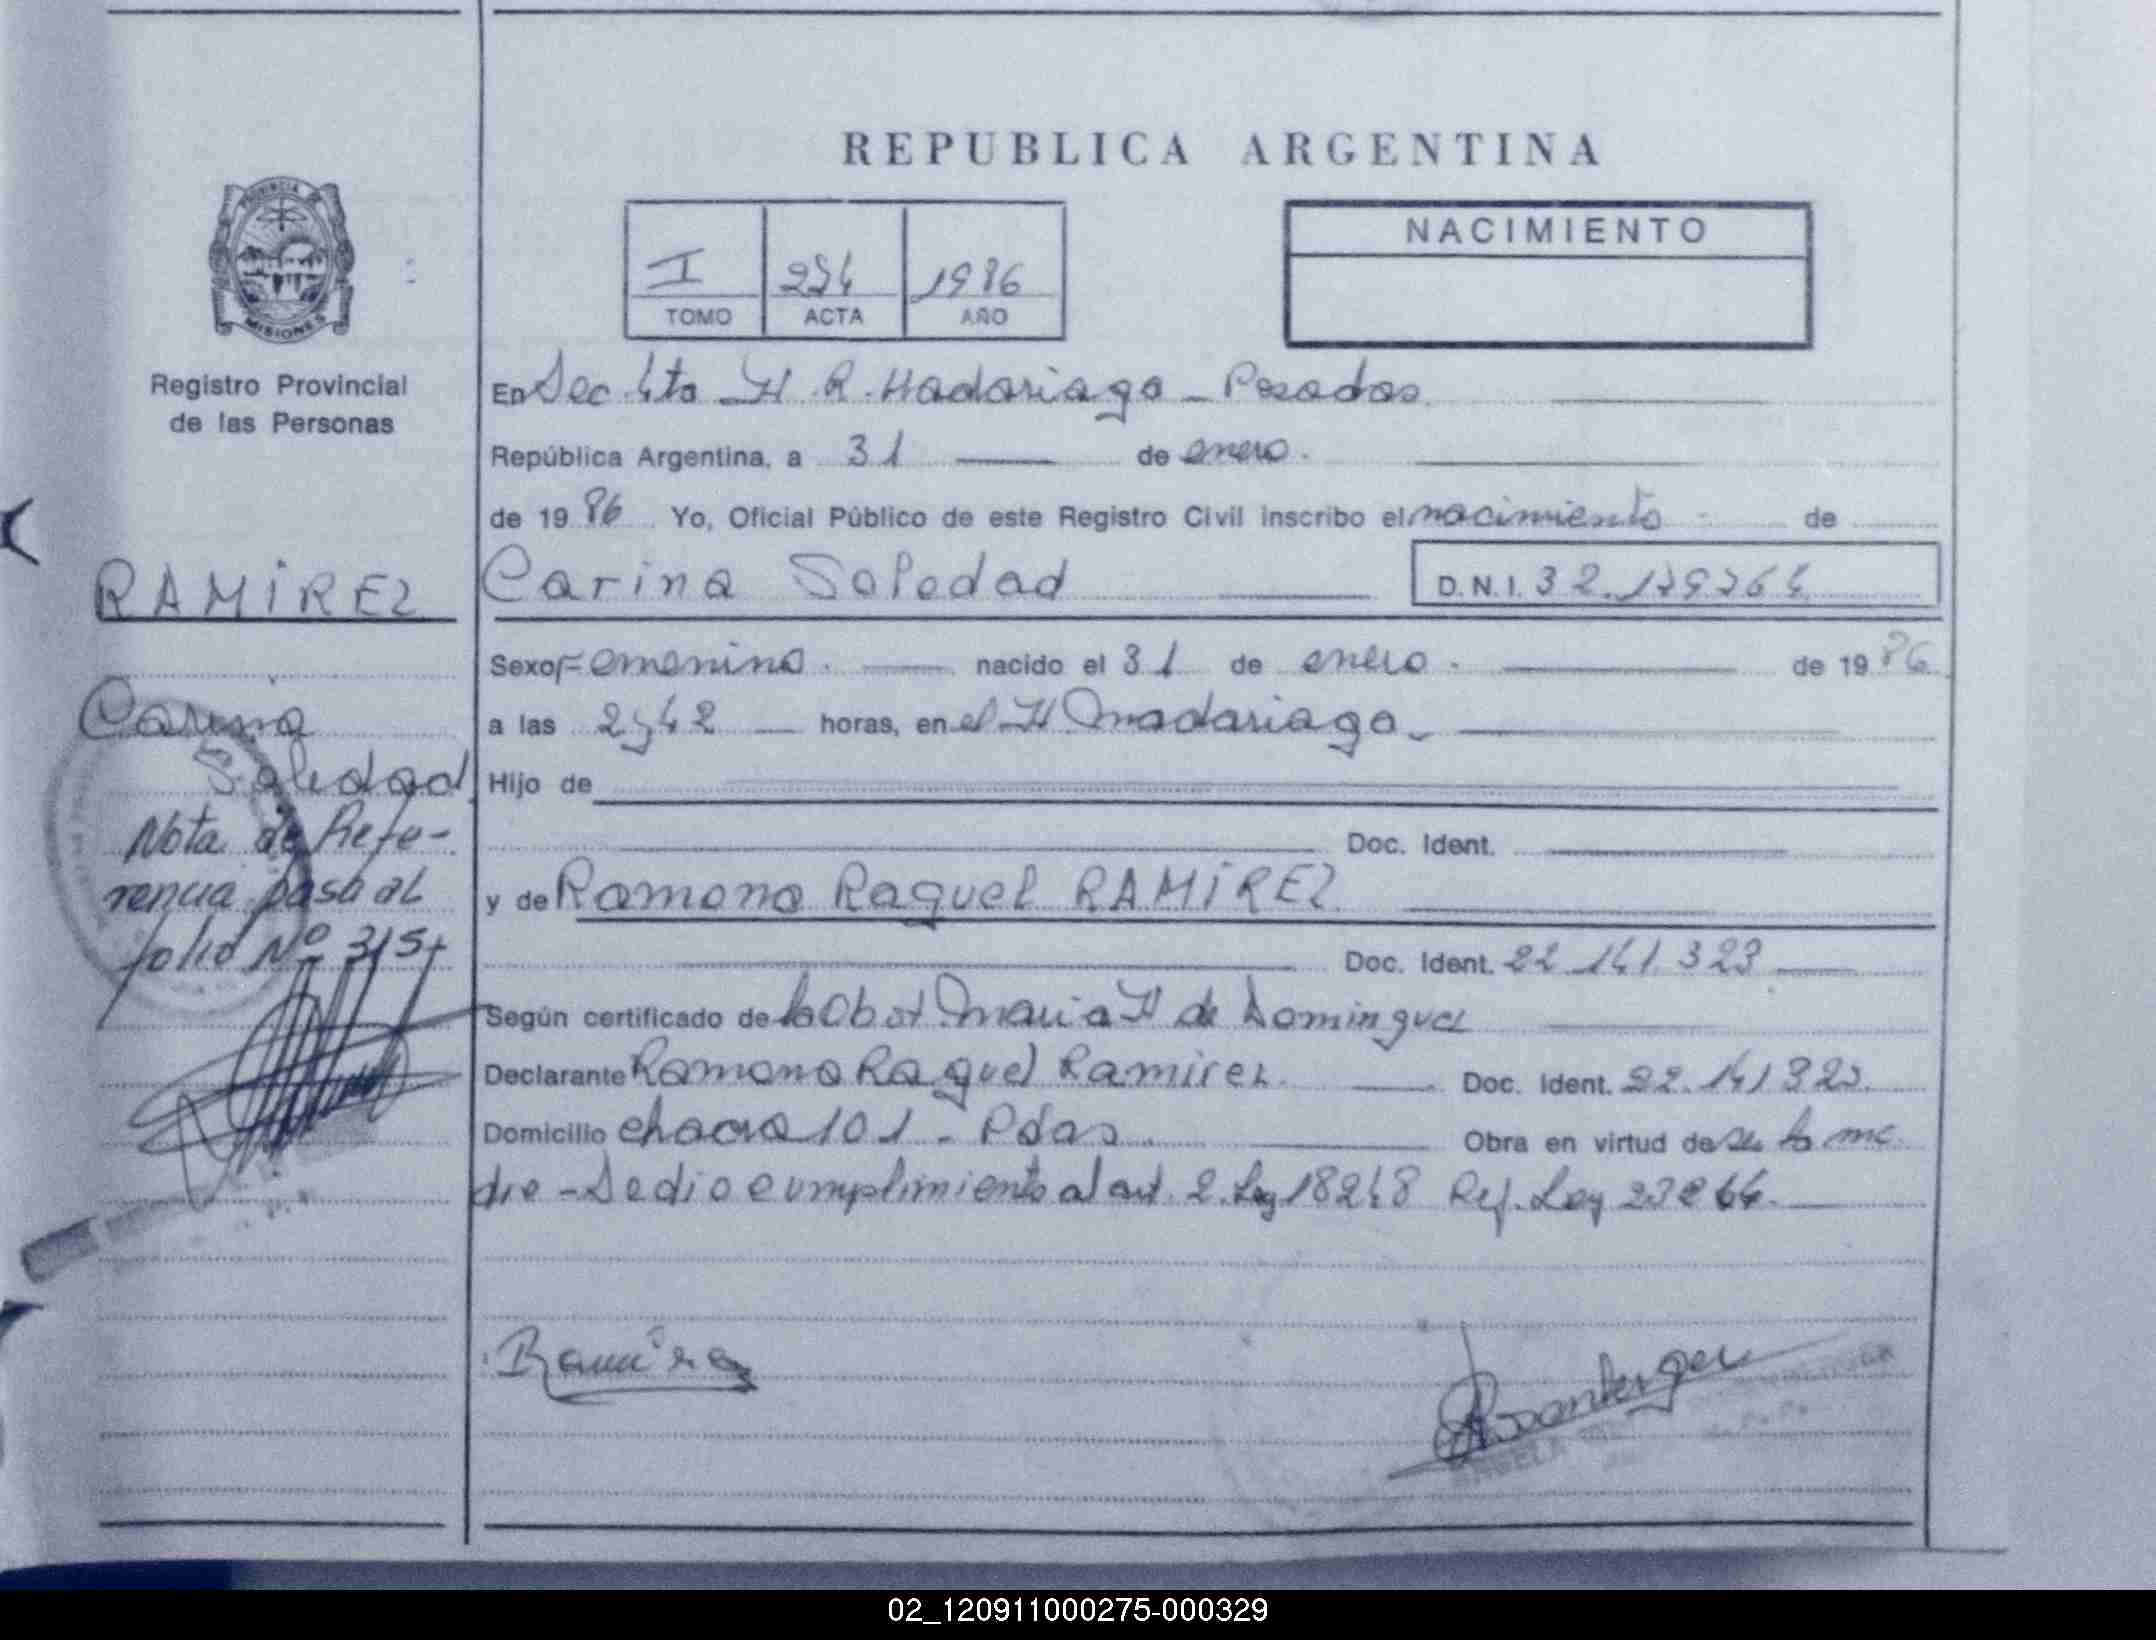 REPUBLICA ARGENTINA
PROVINCIA
MISIONES
NACIMIENTO
I 1986
TOMO ACTA AÑO
Registro Provincial
de las Personas
En Sec. 4ta H. R. Madariaga - Posadas
República Argentina, a 31 de enero.
de 19 86 Yo, Oficial Público de este Registro Civil inscribo el nacimiento de
RAMÍREZ
Carina Soledad D.N.I. 32.
Sexo Femenino. nacido el 31 de enero. de 19 86
Carina
Soledad
a las horas, en el H Madariaga
Hijo de
Nota de Refe-
rencia pasa al
folio Nº 315
Doc. Ident.
y de Ramona Raquel RAMÍREZ
Doc. Ident. 22.141.323
Según certificado de la Obst. Maria H de Dominguez
Declarante Ramona Raquel Ramirez. Doc. Ident. 22.141323
Domicilio chacra 101 - Pdas. Obra en virtud de su la ma
dre - Se dio cumplimiento al art. 2. Ley 18248 Ref. Ley 23264.
Ramírez
02_120911000275-000329